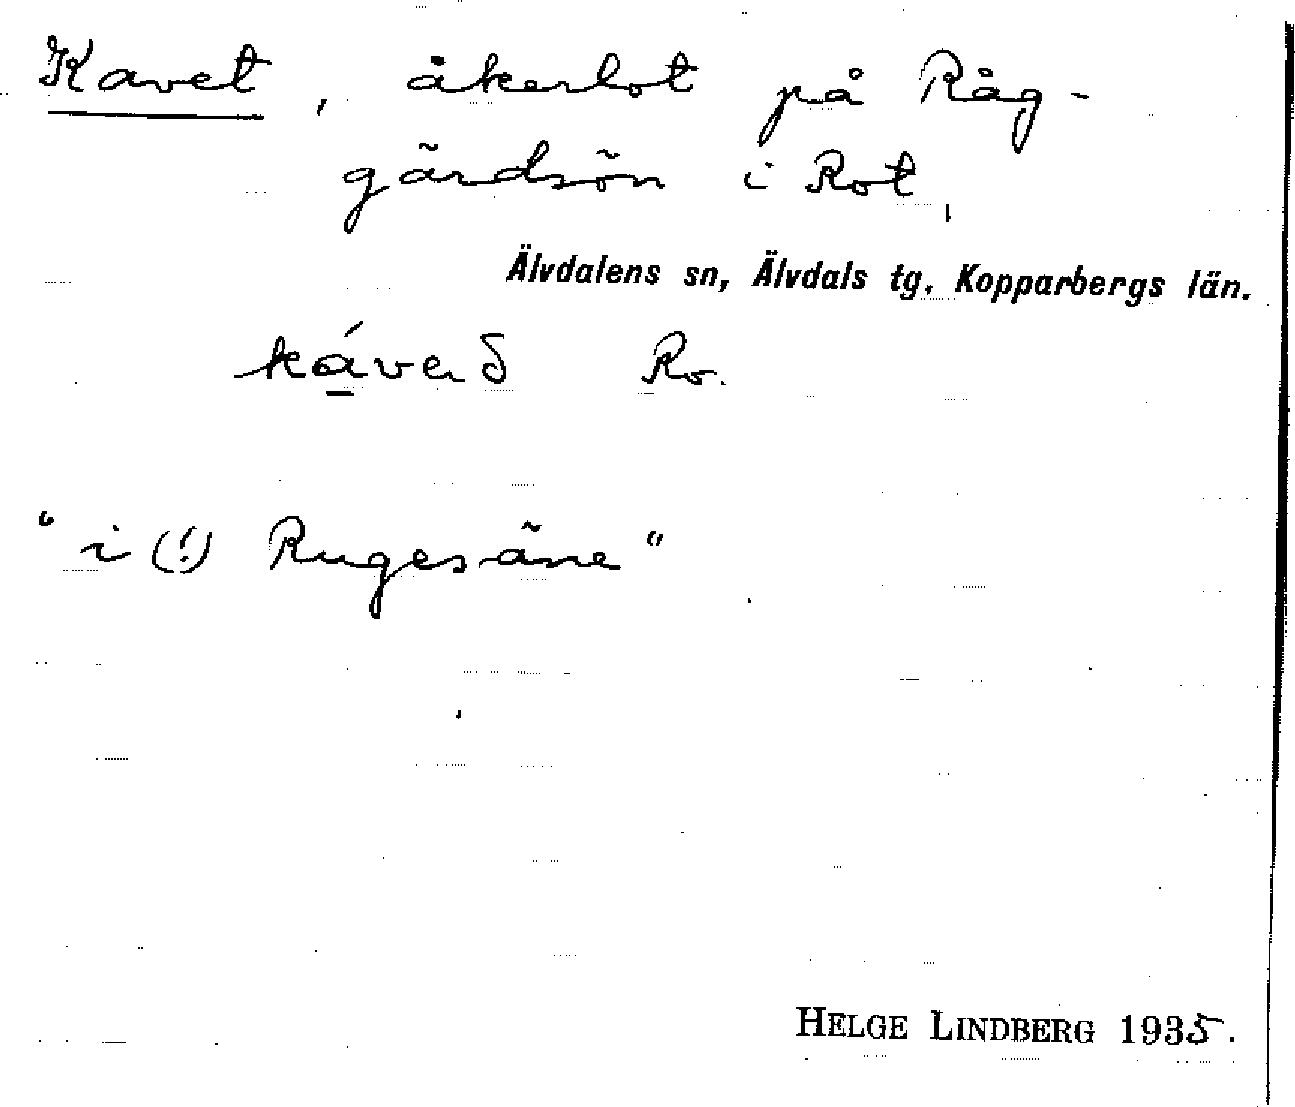 Kavet, åkerlot på Råg-
gärdsön i Rot,
Älvdalens sn, Älvdals tg, Kopparbergs län.
ká̱veð Ro.
"i (!) Rugesäne"
HELGE LINDBERG 1935.